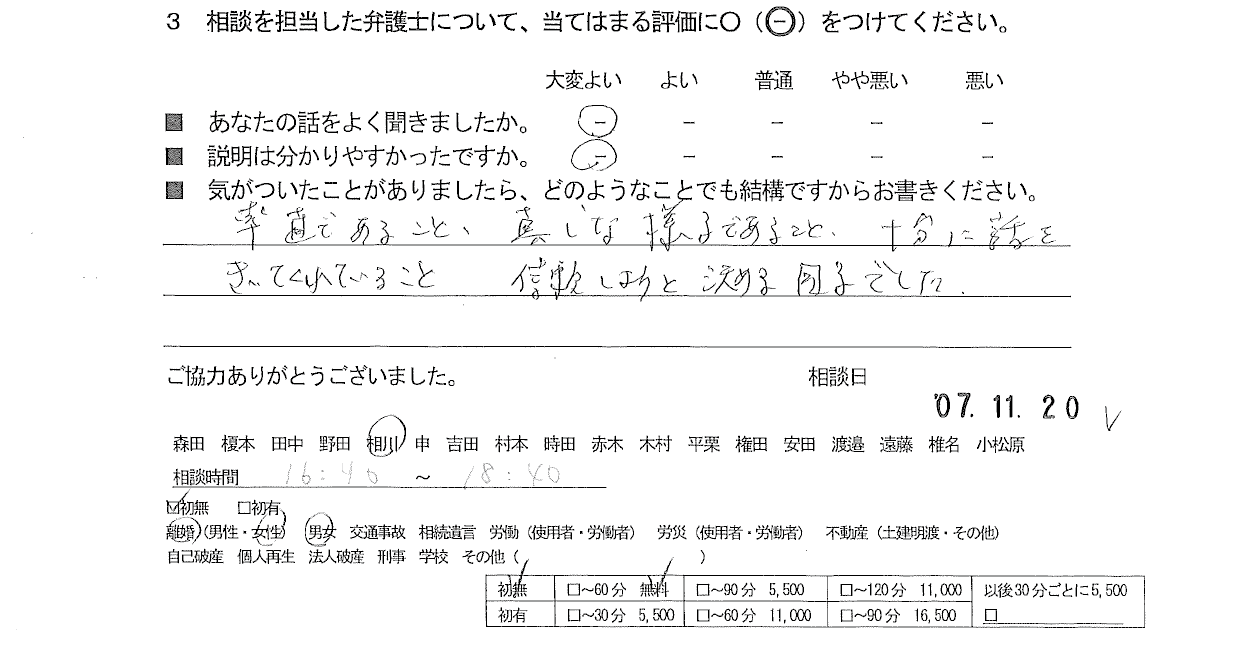 3 相談を担当した弁護士について、当てはまる評価に〇(㊀)をつけてください。
大変よい よい 普通 やや悪い 悪い
■ あなたの話をよく聞きましたか。 － － － － －
■ 説明は分かりやすかったですか。 － － － － －
■ 気がついたことがありましたら、どのようなことでも結構ですからお書きください。
率直であること、真しな様子であること、十分に話を
きいてくれていること 信頼しようと決める因子でした.
ご協力ありがとうございました。 相談日
'07.11.20
森田 榎本 田中 野田 相川 申 吉田 村本 時田 赤木 木村 平栗 権田 安田 渡邉 遠藤 椎名 小松原
相談時間 16:40 ～ 18:40
☑初無 □初有
離婚(男性・女性) 男女 交通事故 相続遺言 労働(使用者・労働者) 労災(使用者・労働者) 不動産(土建明渡・その他)
自己破産 個人再生 法人破産 刑事 学校 その他( )
初無 □～60分 無料 □～90分 5,500 □～120分 11,000 以後30分ごとに5,500
初有 □～30分 5,500 □～60分 11,000 □～90分 16,500 □